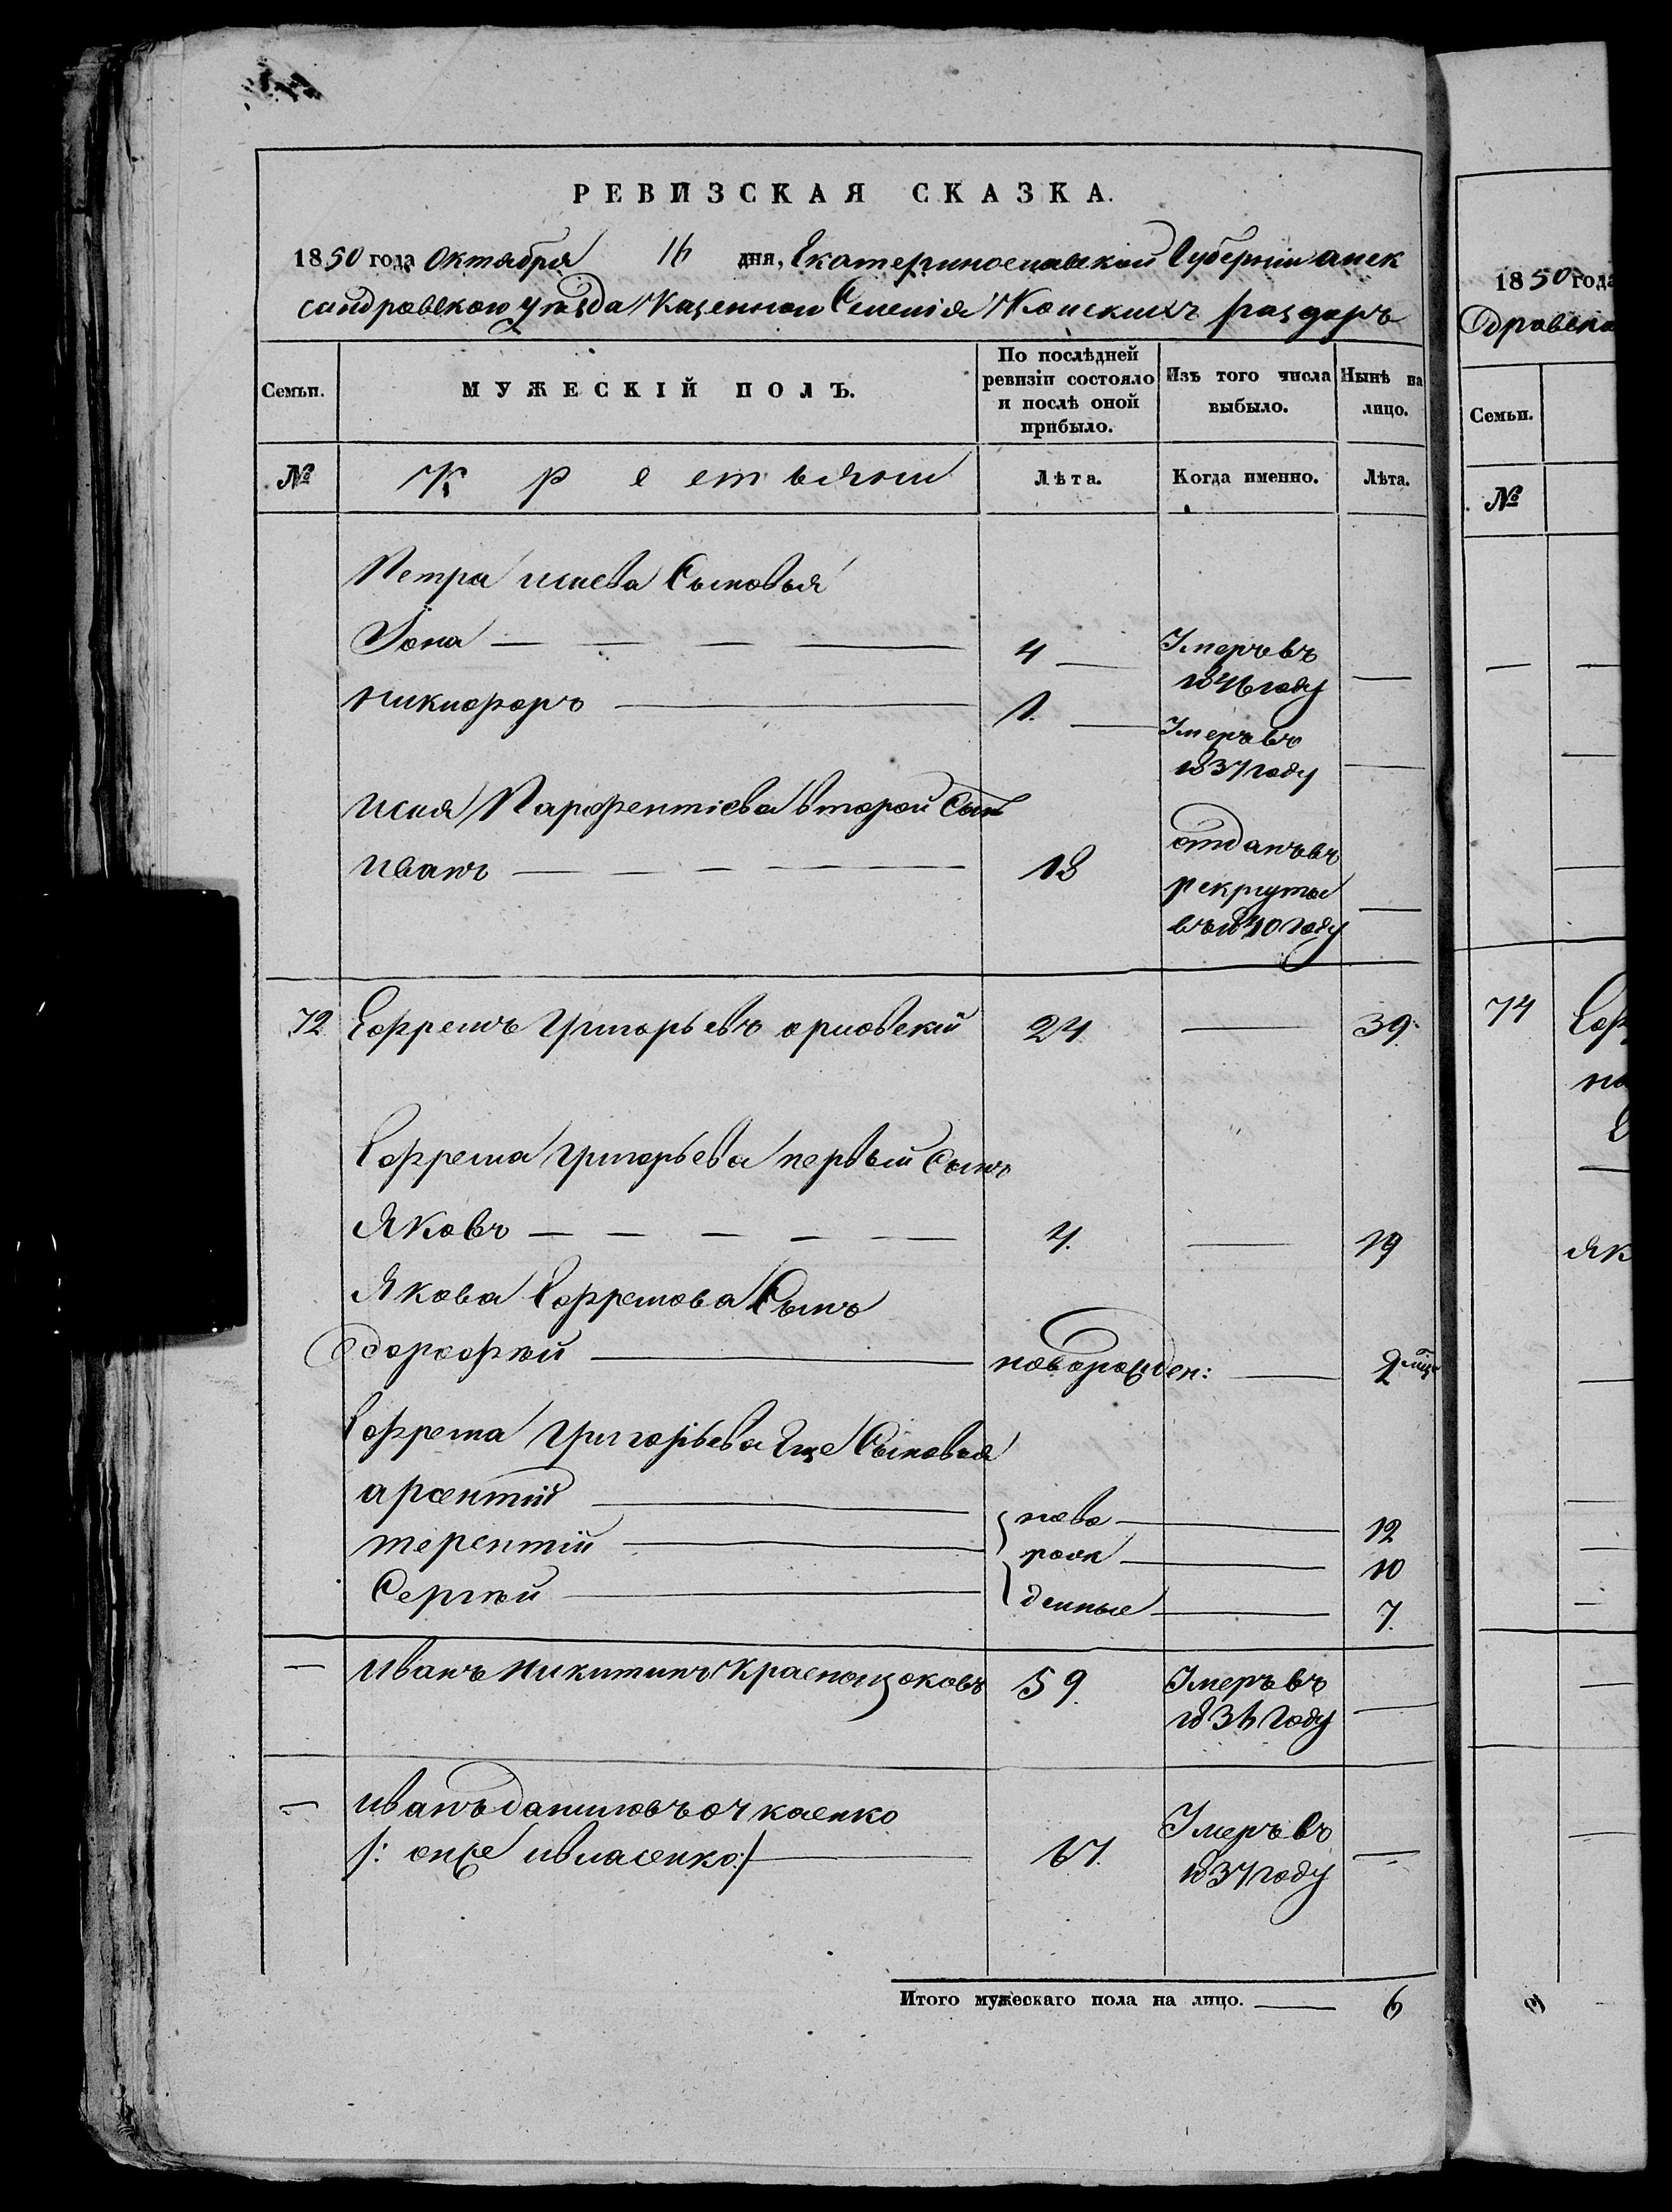 РЕВИЗСКАЯ СКАЗКА.
1850 года Октября 16 дня, Екатеринославской Губерніи алек
сандровскаго уѣзда Казеннаго Селенія Конскихъ раздоръ
Семьи.
МУЖЕСКІЙ ПОЛЪ.
По послѣдней ревизіи состояло и послѣ оной прибыло.
Изъ того числа выбыло.
Нынѣ на лицо.
№
Крестьяни
Лѣта.
Когда именно.
Лѣта.
Петра исаева Сыновья
Іона — 4 — Умеръ въ
1846 году —
никифоръ — 1. — Умеръ въ
1837 году —
исая Парфентіева второй Сынъ
иванъ — 18 отданъ въ
рекруты
въ 1840 году —
72 Ефремъ Григорьевъ орловскій 24 — 39.
Ефрема Григорьева первый Сынъ
Яковъ — 4. — 19
Якова Ефремова Сынъ
дорофѣй — новорожден: — 2 мѣц
Ефрема Григорьева Еще Сыновья
арсентій — ново — 12
терентій — рож — 10
Сергѣй — денные — 7.
— иванъ никитинъ Краснощоковъ 59. Умеръ въ
1836 году —
— иванъ даниловъ очкасенко
/: онже ивласенко:/ — 67. Умеръ въ
1837 году —
Итого мужескаго пола на лицо. — 6
1850 года
дровска
Семьи.
№
74 Еф
як